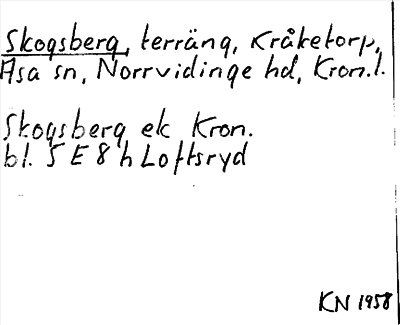 Skogsberg, terräng, Kråketorp,
Asa sn, Norrvidinge hd, Kron.l.
Skogsberg ek Kron.
bl. 5 E 8 h Loftsryd
KN 1958